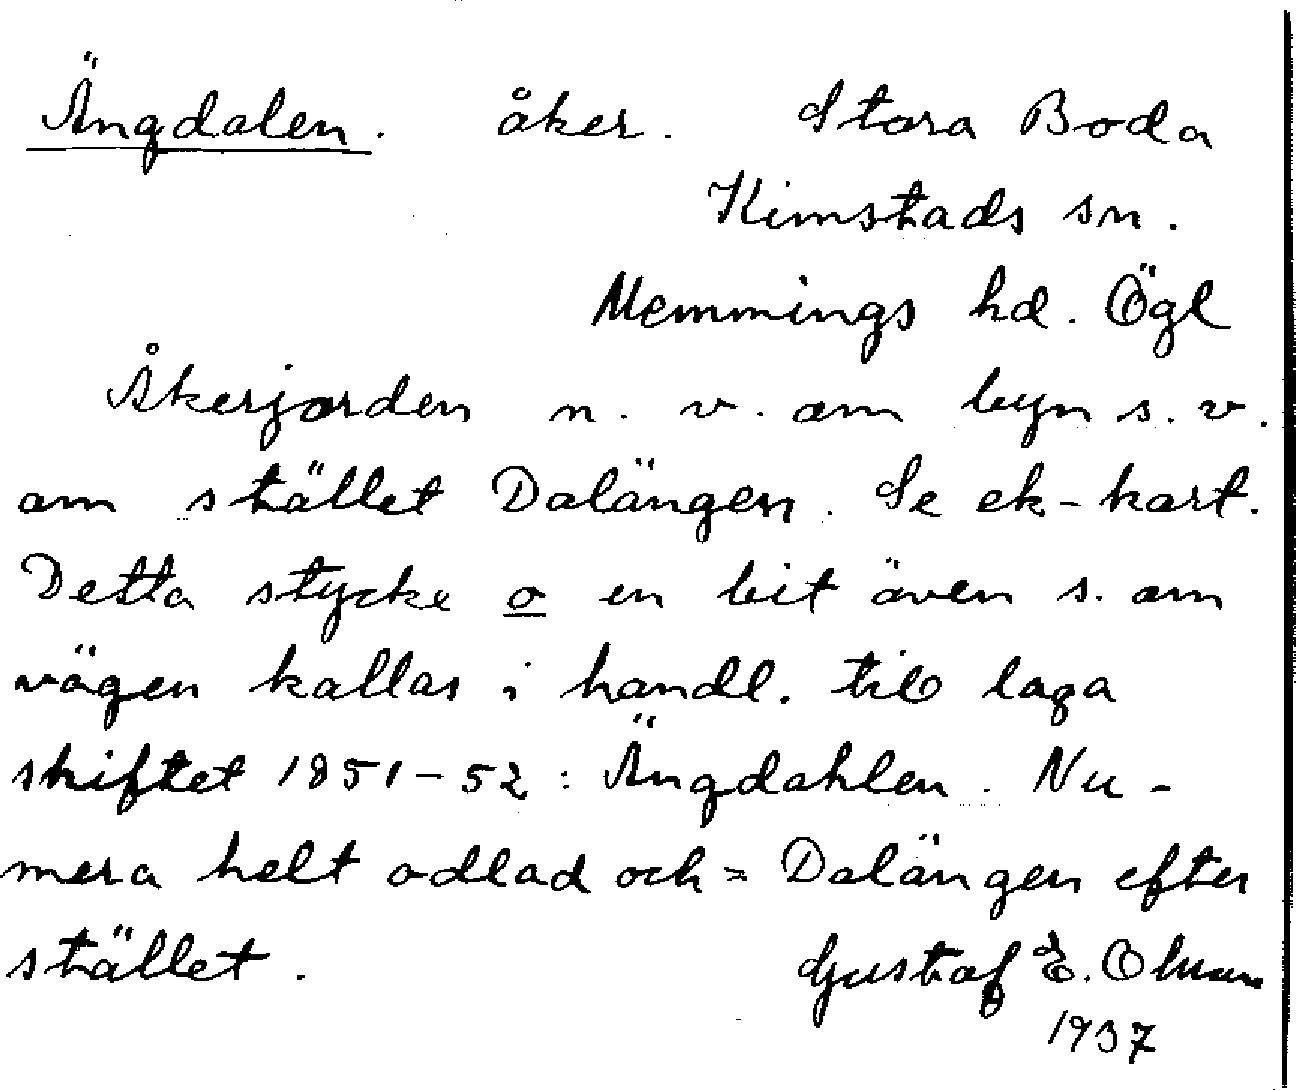 Ängdalen. åker. Stora Boda
Kimstads sn.
Memmings hd. Ögl
Åkerjorden n. v. om byn s. v.
om stället Dalängen. Se ek-kart.
Detta stycke o en bit även s. om
vägen kallas i handl. till laga
skiftet 1851-52: Ängdahlen. Nu-
mera helt odlad och = Dalängen efter
stället. Gustaf E. Olman
1937